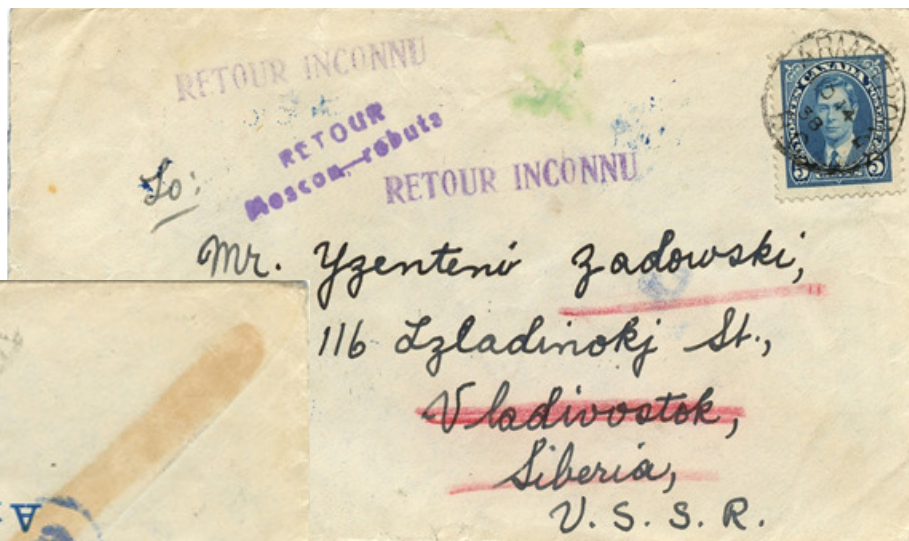 RETOUR INCONNU
RETOUR
Moscou-rebuts
RETOUR INCONNU
POSTES CANADA POSTAGE
3 3
To:
Mr. Yzentenir Zadowski,
116 Lzladinokj St.,
Vladivostok,
Siberia,
U. S. S. R.
A